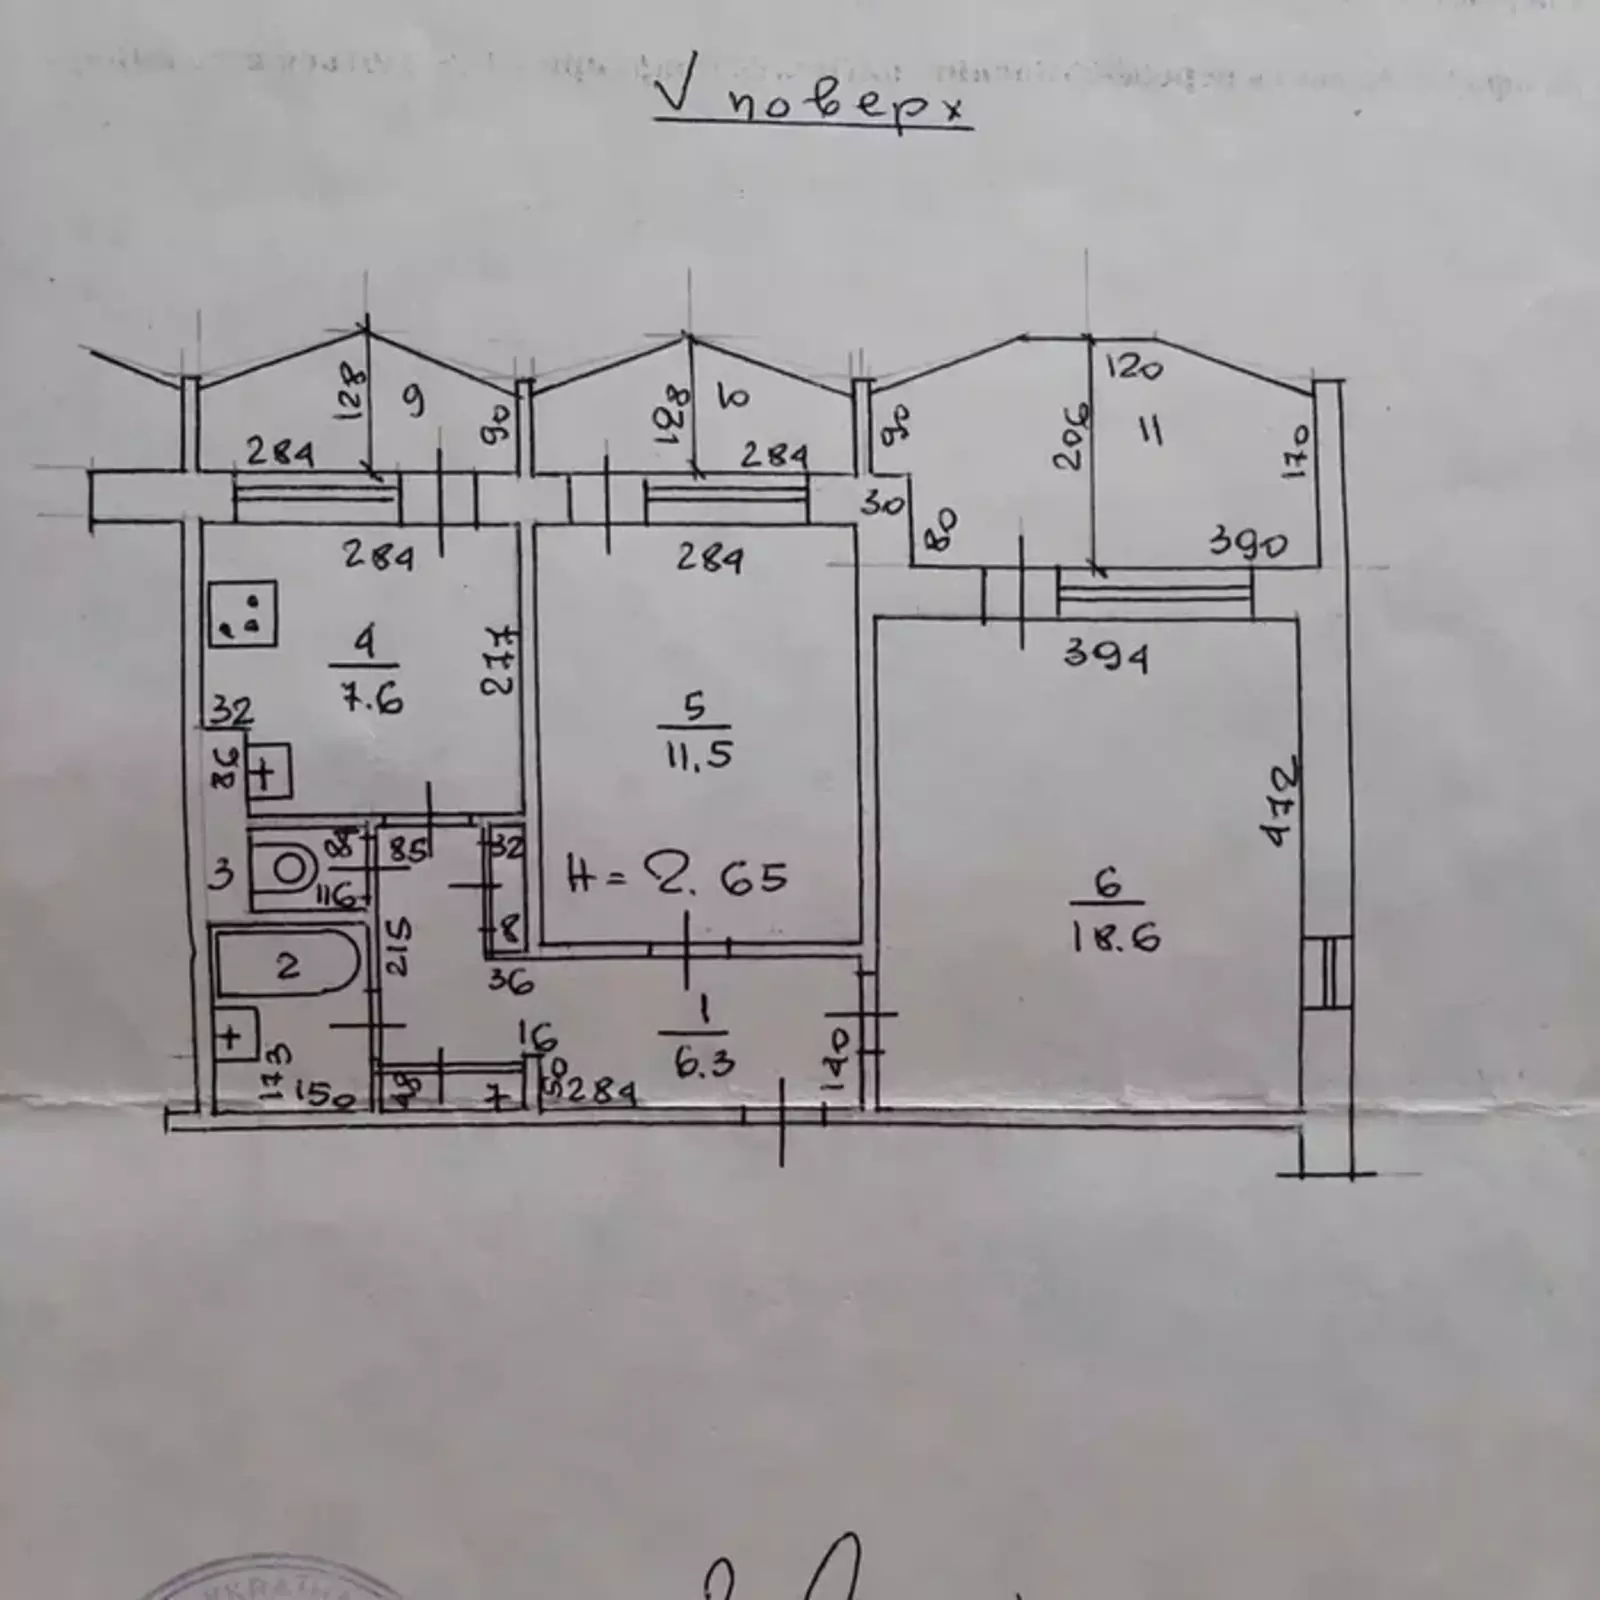 V поверх
128
9
90
284
128
10
284
90
120
206
11
170
30
80
390
284
284
394
4
7.6
277
5
11.5
32
86
472
3
116
85
32
8
H = 2.65
6
18.6
2
215
36
16
1
6.3
140
173
150
48
7
50
284
УКРАЇНА